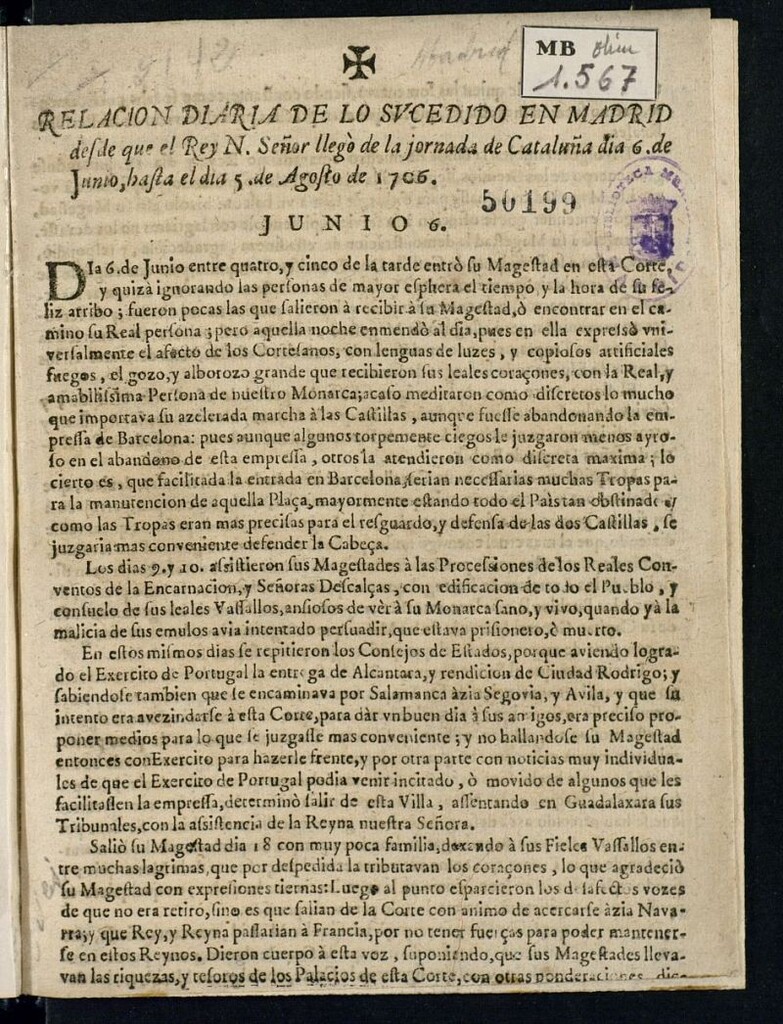 MB olim
1.567
RELACION DIARIA DE LO SVCEDIDO EN MADRID
desde que el Rey N. Señor llegò de la jornada de Cataluña dia 6. de
Junio, hasta el dia 5. de Agosto de 1706.
50199
BIBLIOTECA
JUNIO 6.
DIa 6. de Junio entre quatro, y cinco de la tarde entrò su Magestad en esta Corte,
y quizà ignorando las personas de mayor esphera el tiempo, y la hora de su fe-
liz arribo; fueron pocas las que salieron à recibir à su Magestad, ò encontrar en el ca-
mino su Real persona; pero aquella noche enmendò al dia, pues en ella expressò vni-
versalmente el afecto de los Cortesanos, con lenguas de luzes, y copiosos artificiales
fuegos, el gozo, y alborozo grande que recibieron sus leales coraçones, con la Real, y
amabilissima Persona de nuestro Monarca; acaso meditaron como discretos lo mucho
que importava su azelerada marcha à las Castillas, aunque fuesse abandonando la em-
pressa de Barcelona: pues aunque algunos torpemente ciegos le juzgaron menos ayro-
so en el abandono de esta empressa, otros la atendieron como discreta maxima; lo
cierto es, que facilitada la entrada en Barcelona, serian necessarias muchas Tropas pa-
ra la manutencion de aquella Plaça, mayormente estando todo el Pais tan obstinado y
como las Tropas eran mas precisas para el resguardo, y defensa de las dos Castillas, se
juzgaria mas conveniente defender la Cabeça.
Los dias 9. y 10. assistieron sus Magestades à las Processiones de los Reales Con-
ventos de la Encarnacion, y Señoras Descalças, con edificacion de todo el Pueblo, y
consuelo de sus leales Vassallos, ansiosos de vèr à su Monarca sano, y vivo, quando yà la
malicia de sus emulos avia intentado persuadir, que estava prisionero, ò muerto.
En estos mismos dias se repitieron los Consejos de Estados, porque aviendo logra-
do el Exercito de Portugal la entrega de Alcantara, y rendicion de Ciudad Rodrigo; y
sabiendose tambien que se encaminava por Salamanca àzia Segovia, y Avila, y que su
intento era avezindarse à esta Corte, para dàr vn buen dia à sus amigos, era preciso pro-
poner medios para lo que se juzgasse mas conveniente; y no hallandose su Magestad
entonces con Exercito para hazerle frente, y por otra parte con noticias muy individua-
les de que el Exercito de Portugal podia venir incitado, ò movido de algunos que les
facilitassen la empressa, determinò salir de esta Villa, assentando en Guadalaxara sus
Tribunales, con la assistencia de la Reyna nuestra Señora.
Saliò su Magestad dia 18 con muy poca familia, dexando à sus Fieles Vassallos en-
tre muchas lagrimas, que por despedida la tributavan los coraçones, lo que agradeciò
su Magestad con expresiones tiernas: Luego al punto esparcieron los desafectos vozes
de que no era retiro, sino es que salian de la Corte con animo de acercarse àzia Nava-
rra; y que Rey, y Reyna passarian à Francia, por no tener fuerças para poder mantener-
se en estos Reynos. Dieron cuerpo à esta voz, suponiendo, que sus Magestades lleva-
van las riquezas, y tesoros de los Palacios de esta Corte, con otras ponderaciones, dic-